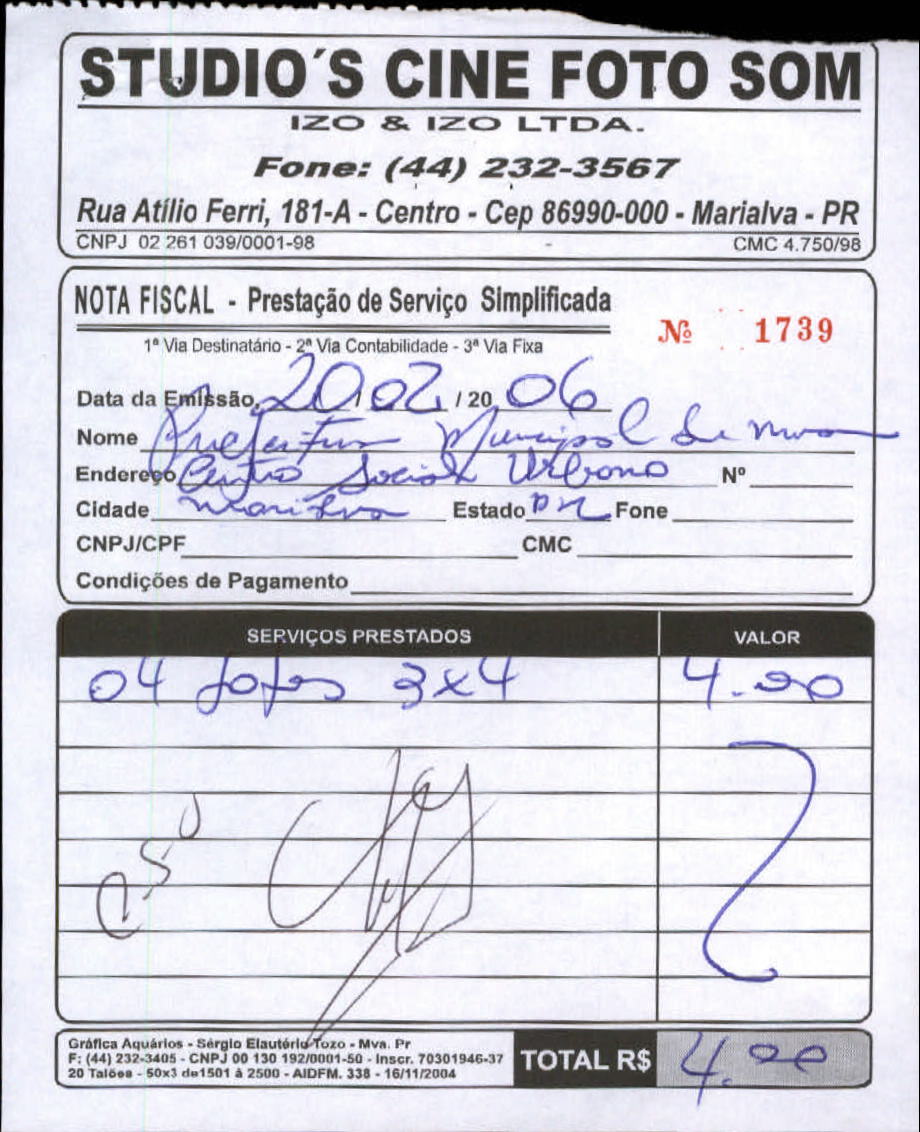 STUDIO´S CINE FOTO SOM
IZO & IZO LTDA.
Fone: (44) 232-3567
Rua Atílio Ferri, 181-A - Centro - Cep 86990-000 - Marialva - PR
CNPJ 02 261 039/0001-98 CMC 4.750/98
NOTA FISCAL - Prestação de Serviço Simplificada
Nº 1739
1ª Via Destinatário - 2ª Via Contabilidade - 3ª Via Fixa
Data da Emissão 20 / 02 / 20 06
Nome Prefeitura Municipal de
Endereço Centro Social Urbano Nº
Cidade Marialva Estado PR Fone
CNPJ/CPF CMC
Condições de Pagamento
SERVIÇOS PRESTADOS VALOR
04 fotos 3x4 4.00
Gráfica Aquários - Sérgio Elautério Tozo - Mva. Pr
F: (44) 232-3405 - CNPJ 00 130 192/0001-50 - Inscr. 70301946-37
20 Talões - 50x3 de1501 à 2500 - AIDFM. 338 - 16/11/2004
TOTAL R$ 4.00